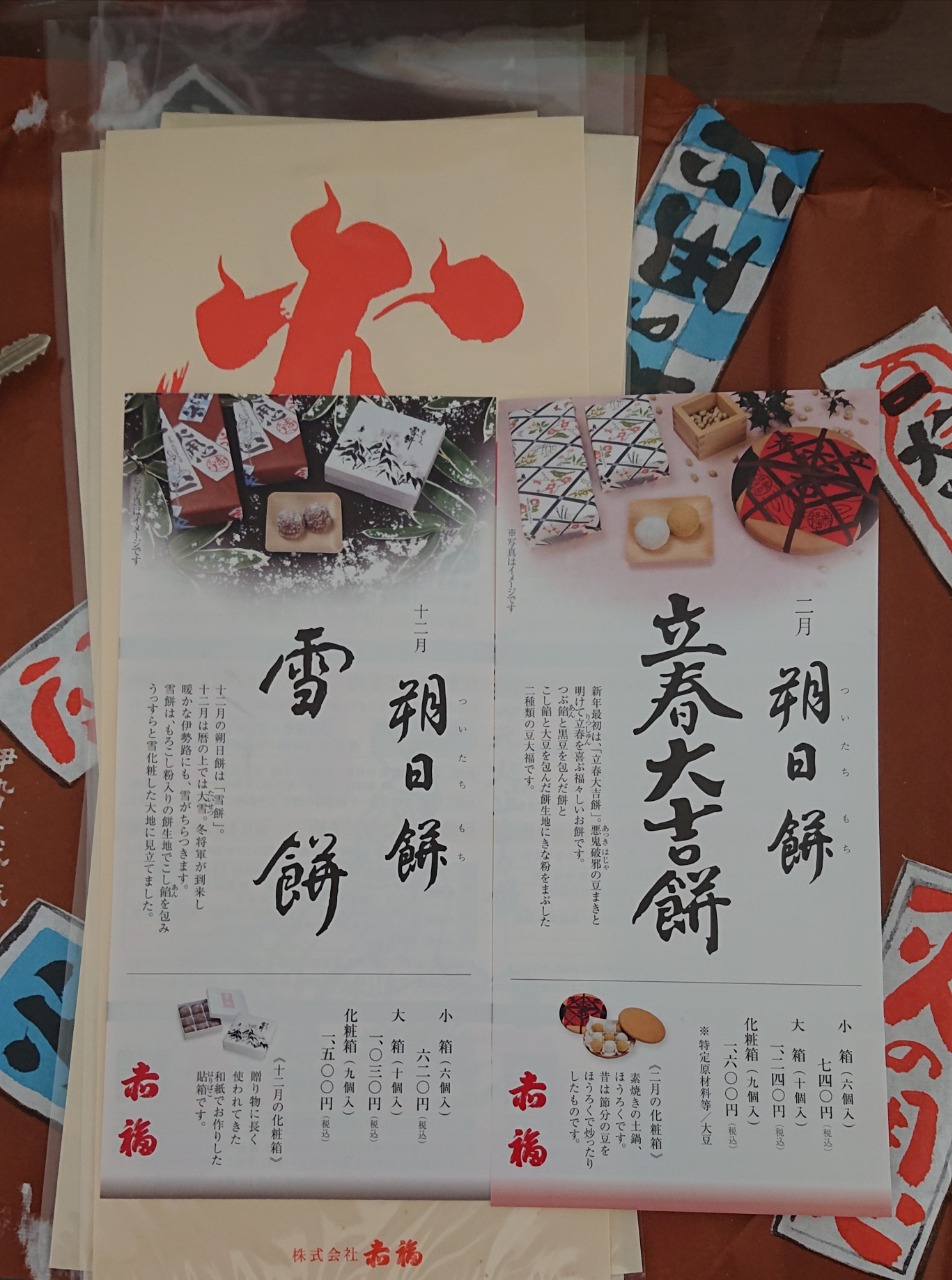 赤
※写真はイメージです
二月
朔日餅
ついたちもち
立春大吉餅
新年最初は、「立春大吉餅」。悪鬼破邪の豆まきと
あっきはじゃ
明けて立春を喜ぶ福々しいお餅です。
りっしゅん
つぶ餡と黒豆を包んだ餅と
あん
こし餡と大豆を包んだ餅生地にきな粉をまぶした
二種類の豆大福です。
小箱（六個入）
七四〇円（税込）
大箱（十個入）
一、二四〇円（税込）
化粧箱（九個入）
一、六〇〇円（税込）
※特定原材料等／大豆
《二月の化粧箱》
素焼きの土鍋、
ほうろくです。
昔は節分の豆を
ほうろくで炒ったり
したものです。
赤福
※写真はイメージです
十二月
朔日餅
ついたちもち
雪餅
十二月の朔日餅は「雪餅」。
十二月は暦の上では大雪。冬将軍が到来し
たいせつ
暖かな伊勢路にも、雪がちらつきます。
雪餅は、もろこし粉入りの餅生地でこし餡を包み
あん
うっすらと雪化粧した大地に見立てました。
小箱（六個入）
六二〇円（税込）
大箱（十個入）
一、〇三〇円（税込）
化粧箱（九個入）
一、五〇〇円（税込）
《十二月の化粧箱》
贈り物に長く
使われてきた
和紙でお作りした
貼箱です。
はりばこ
赤福
株式会社赤福